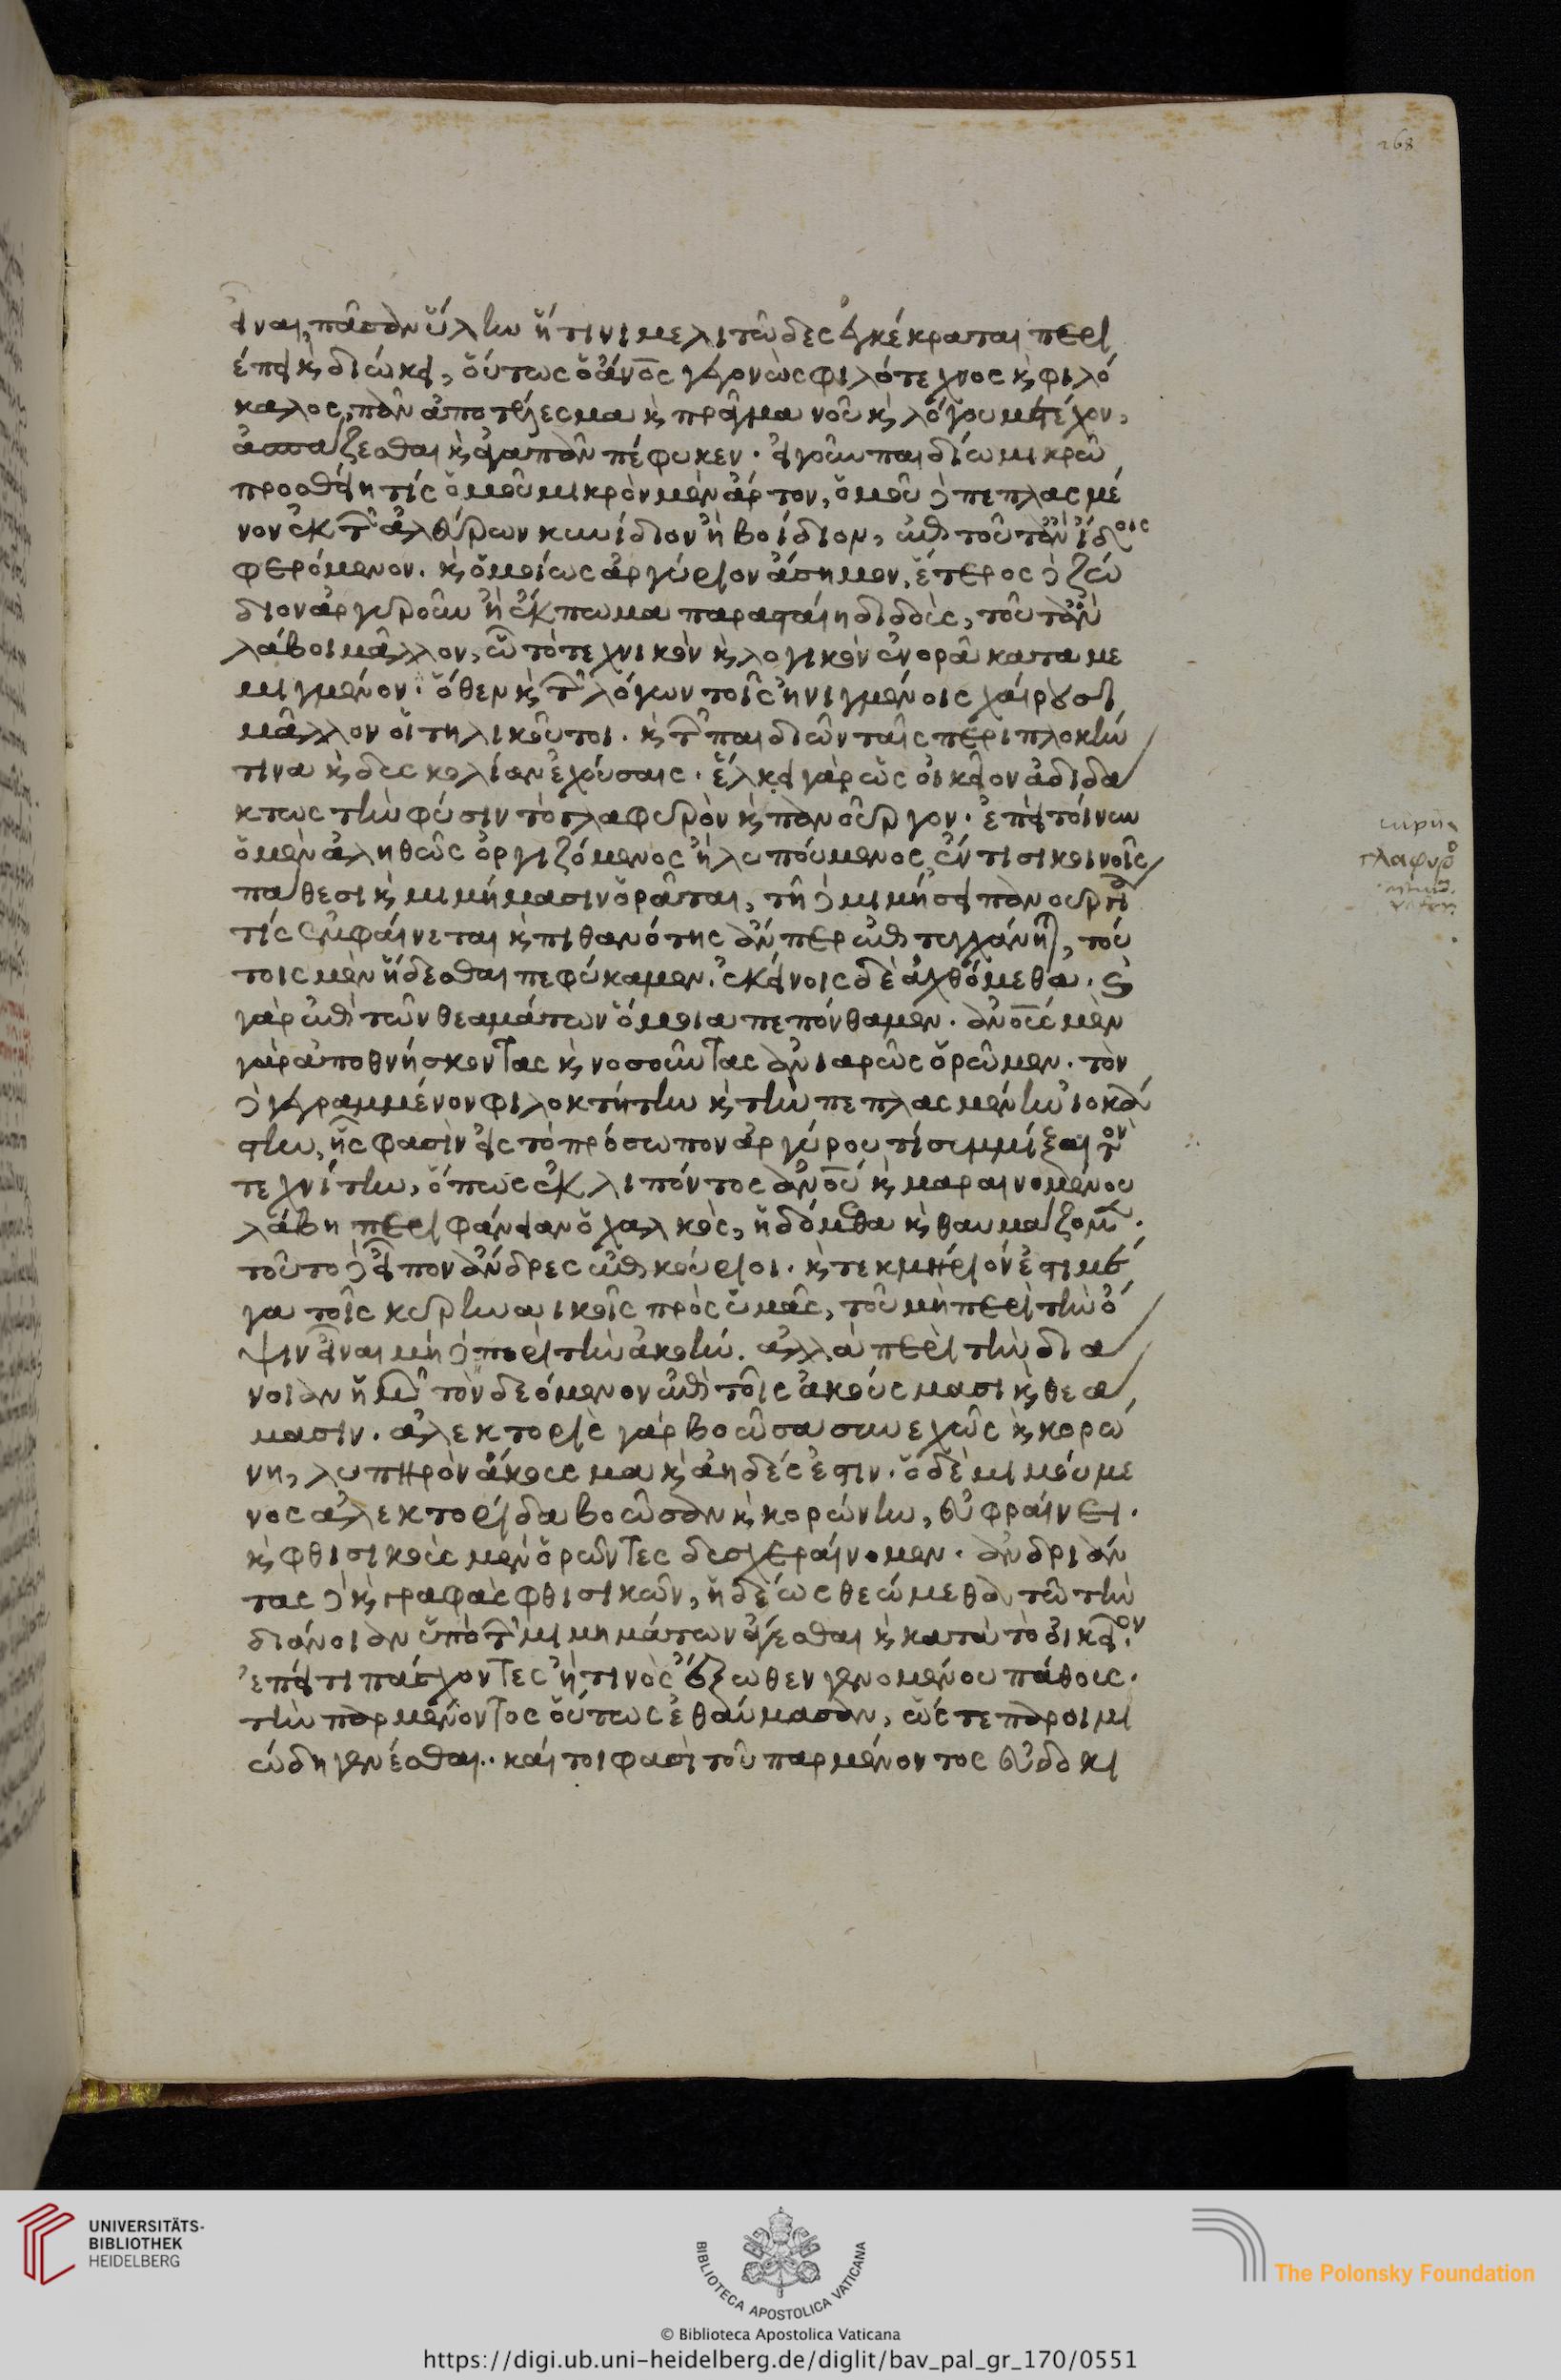 εἶναι, πᾶσαν ὕλην ἥ τινι μελιτῶδες ἐγκέκραται περι
έπει κ διώκει, οὕτως ὁ ἄνος γεγονὼς φιλότεχνος κ φιλό
καλος, πᾶν ἀποτέλεσμα κ πρᾶγμα νοῦ κ λόγου μετέχον,
ἀσπάζεσθαι κ ἀγαπᾶν πέφυκεν. εἰ γοῦν παιδίω μικρῶ
προσθείη τίς ὁμοῦ μικρὸν μὲν ἄρτον, ὁμοῦ δὲ πεπλασμέ
νον ἐκ τῶν ἀλεύρων κυνίδιον ἢ βοίδιον, ἐπὶ τοῦτ ἂν ἴδοις
φερόμενον. κ ὁμοίως ἀργύριον ἄσημον, ἕτερος δὲ ζώ
διον ἀργυροῦν ἢ ἔκπωμα παρασταίη διδοὺς, τοῦτ ἂν
λάβοι μᾶλλον, ὧ τὸ τεχνικὸν κ λογικὸν ἐνορᾶ καταμε
μιγμένον. ὅθεν κ τῶν λόγων τοῖς ἠνιγμένοις χαίρουσι
μᾶλλον οἱ τηλικοῦτοι. κ τῶν παιδιῶν ταῖς περιπλοκὴν
τινα κ δυσκολίαν ἐχούσαις. ἕλκει γὰρ ὡς οἰκεῖον ἀδιδά
κτως τὴν φύσιν τὸ γλαφυρὸν κ πανοῦργον. ἐπεὶ τοίνυν
ὁ μὲν ἀληθῶς ὀργιζόμενος ἢ λυπούμενος ἔν τισι κοινοῖς
πάθεσι κ μιμήμασιν ὁρᾶται, τῆ δὲ μιμήσει πανουργία
τίς ἐμφαίνεται κ πιθανότης ἄν περ ἐπιτυγχάνηται, τού
τοις μὲν ἥδεσθαι πεφύκαμεν. ἐκείνοις δὲ ἀχθόμεθα. κ
γὰρ ἐπὶ τῶν θεαμάτων ὅμοια πεπόνθαμεν. ἀνους μὲν
γὰρ ἀποθνήσκοντας κ νοσοῦντας ἀνιαρῶς ὁρῶμεν. τὸν
δὲ γεγραμμένον φιλοκτήτην κ τὴν πεπλασμένην ἰοκά
στην, ἧς φασὶν εἰς τὸ πρόσωπον ἀργύρου τί συμμίξαι τὸν
τεχνίτην, ὅπως ἐκλιπόντος ἀνου κ μαραινομένου
λάβη περιφάνειαν ὁ χαλκὸς, ἡδόμεθα κ θαυμάζομεν.
τοῦτο δὲ εἶπον ἄνδρες ἐπικούριοι. κ τεκμήριόν ἐστι μέ
γα τοῖς κυρηναικοῖς πρὸς ὑμᾶς, τοῦ μὴ περὶ τὴν ὄ
ψιν εἶναι μὴ δὲ περὶ τὴν ἀκοὴν. ἀλλὰ περὶ τὴν διά
νοιαν ἡμῶν τὸν δεόμενον ἐπὶ τοῖς ἀκούσμασι κ θεά
μασιν. ἀλεκτορὶς γὰρ βοῶσα συνεχῶς κ κορώ
νη, λυπηρὸν ἄκουσμα κ ἀηδές ἐστιν. ὁ δὲ μιμούμε
νος ἀλεκτορίδα βοῶσαν κ κορώνην, εὐφραίνει.
κ φθισικοὺς μὲν ὁρῶντες δυσχεραίνομεν. ἀνδριάν
τας δὲ κ γραφὰς φθισικῶν, ἡδέως θεώμεθα τῶ τὴν
διάνοιαν ὑπὸ τῶν μιμημάτων ἄγεσθαι κ κατὰ τὸ οἰκεῖον.
ἐπεὶ τι πάσχοντες ἢ τινὸς ἔξωθεν γενομένου πάθους.
τὴν παρμένοντος οὕτως ἐθαύμασαν, ὥς τε παροιμι
ώδη γενέσθαι. καί τοι φασὶ τοῦ παρμένοντος εὐδοκι
268
γλαφυρὸ
UNIVERSITÄTS-
BIBLIOTHEK
HEIDELBERG
BIBLIOTECA APOSTOLICA VATICANA
The Polonsky Foundation
© Biblioteca Apostolica Vaticana
https://digi.ub.uni-heidelberg.de/diglit/bav_pal_gr_170/0551